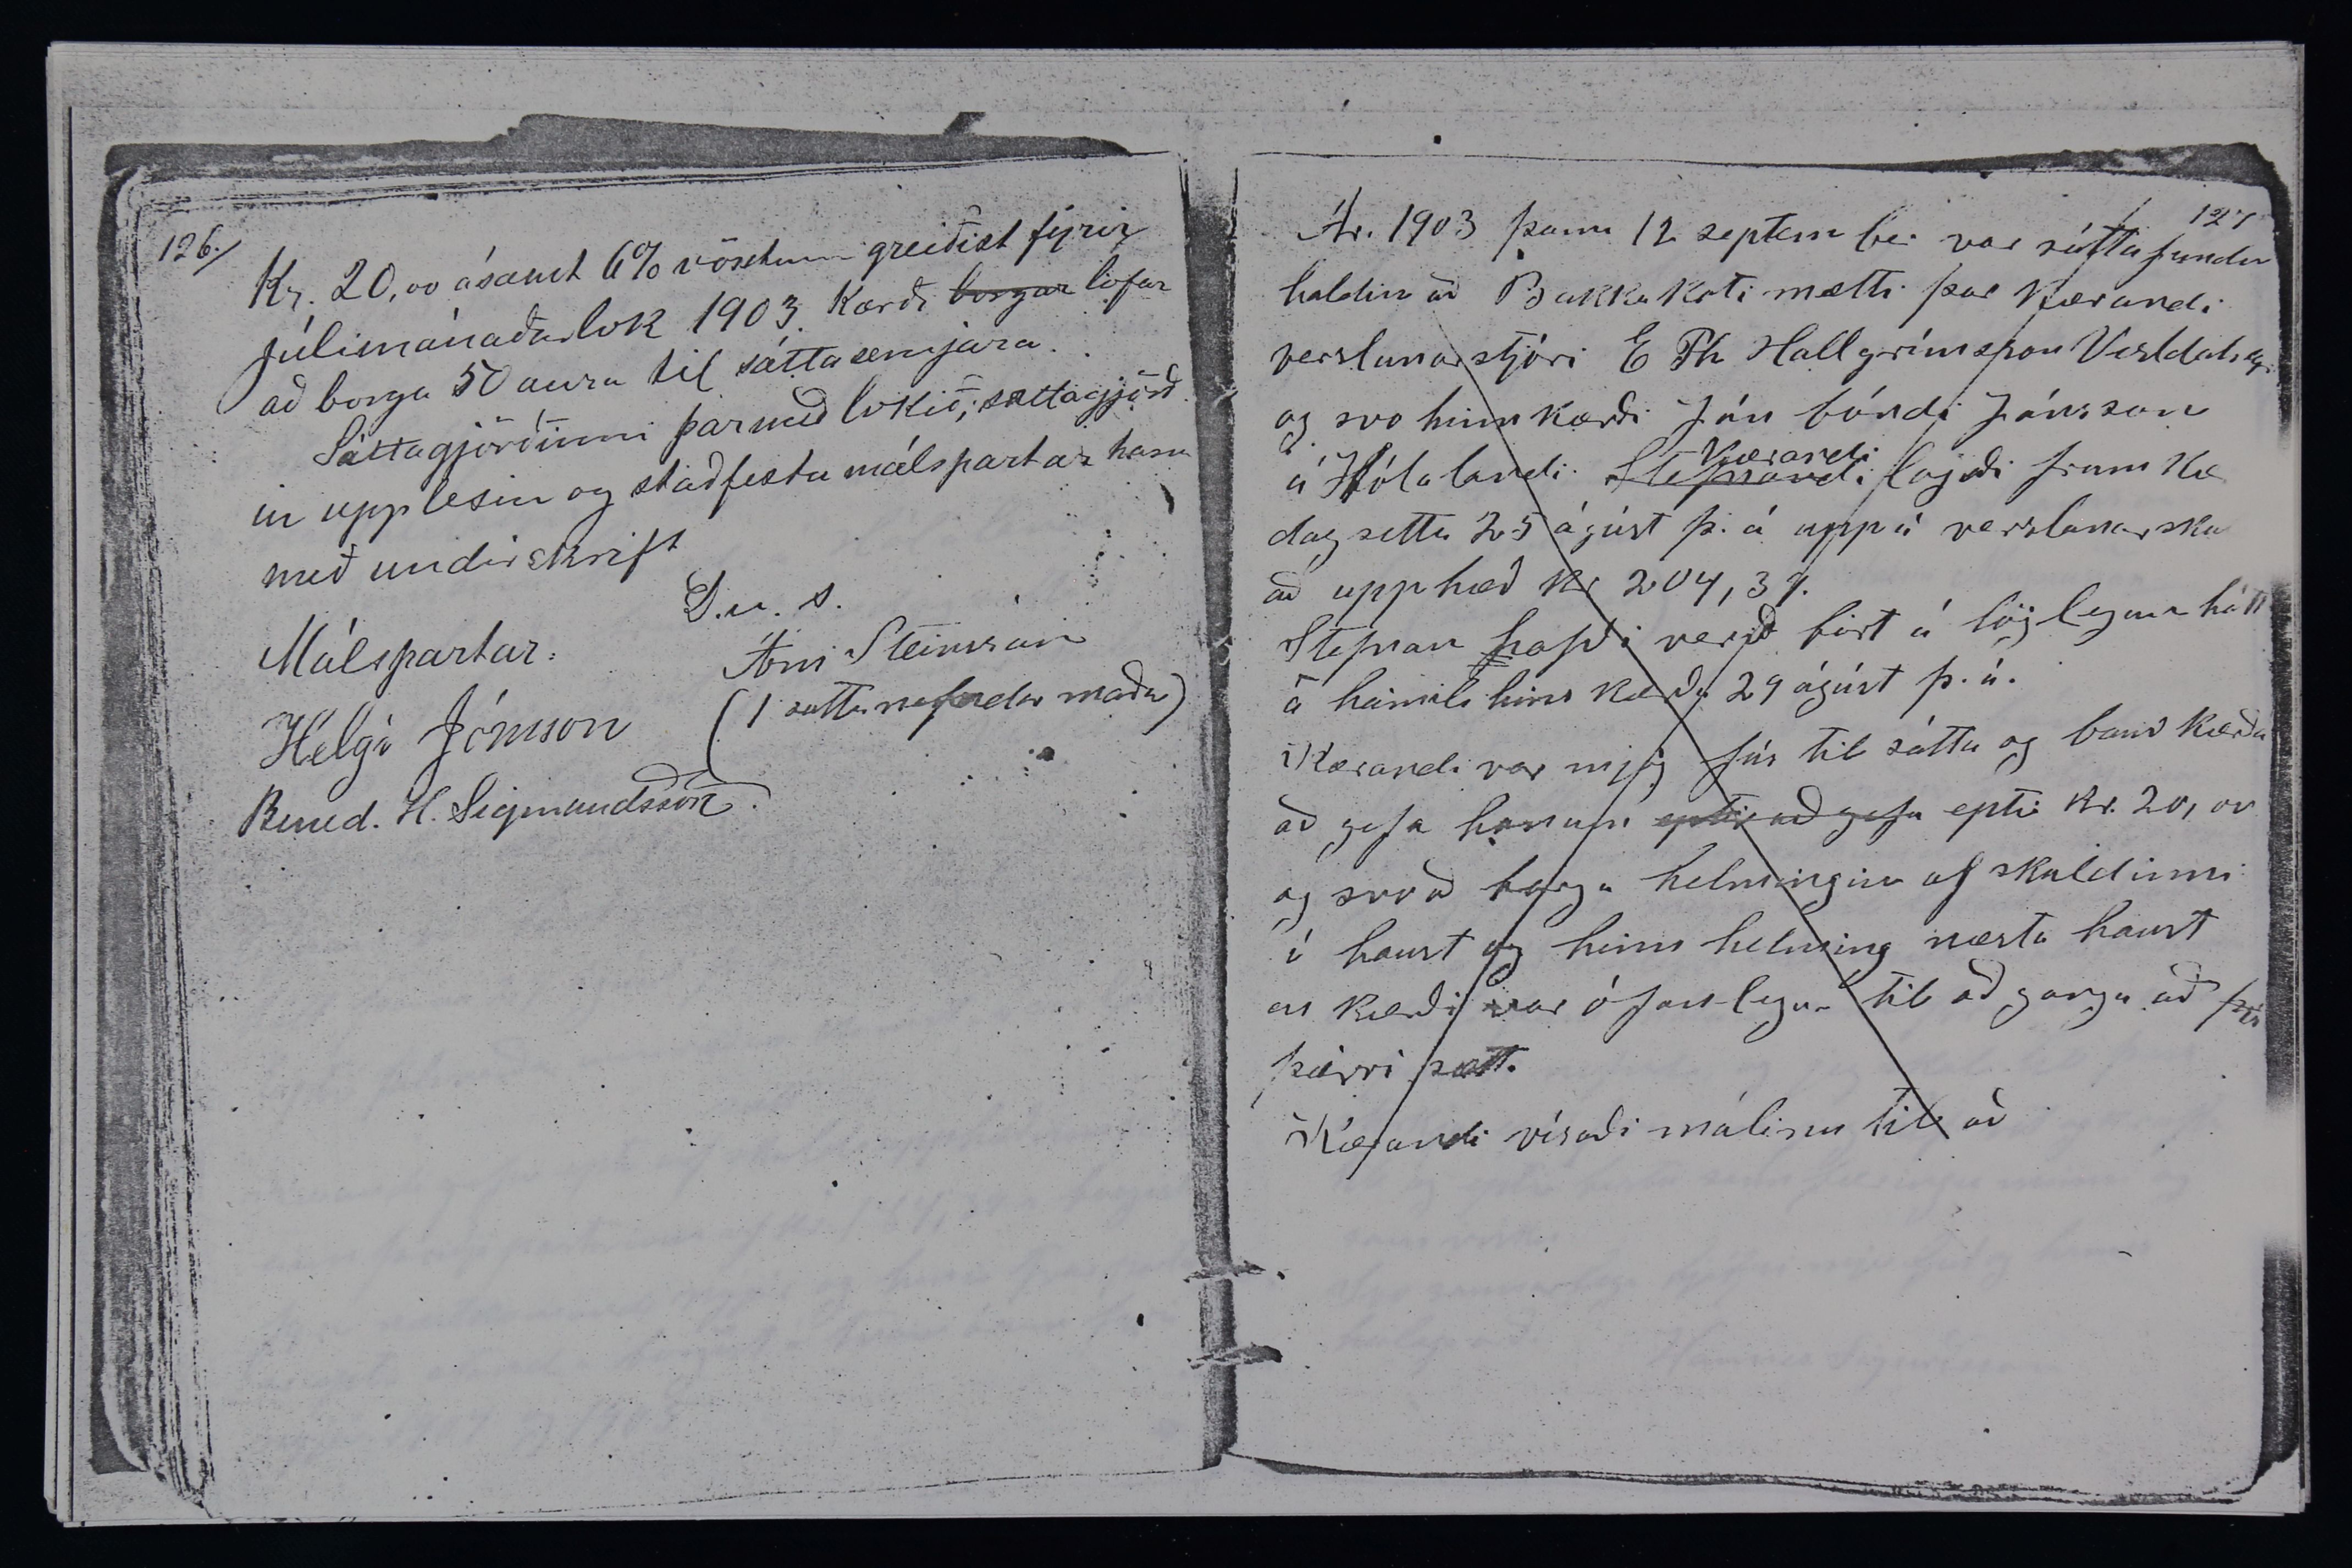 126/
Kr. 20,00 ásamt 6% vöxtum greiðist fyrir
júlímánaðarlok 1903. Kærði borgar lofar
að borga 50 aura til sáttasemjara.
Sáttagjörðinni þarmeð lokið; sáttagjörð
in upplesin og staðfestu málspartar hana
með undirskrift
D.u.s.
Málspartar:
Árni Steinsson
(1 sáttanefndar maður)
Helgi Jónsson
Bened. H. Sigmundsson
127
Ár. 1903 þann 12 september var sáttafundur
haldin að Bakkakoti mætti þar kærandi
verslunarstjóri E Th Hallgrímsson Vestdalseyri
og svo hinn kærði Jón bóndi Jónsson
á Hólalandi. Stefnandi Kærandi lagði fram kæ
dagsettu 25 ágúst þ. á uppá verslunarsku
að upphæð kr 204,37.
Stefnan hafði verið birt á löglegann hátt
á heimili hins kærða 29 ágúst þ. á.
Kærandi var mjög fús til sátta og bauð kærða
að gefa honum eptir að gefa eptir kr. 20,00
og svo að borga helminginn af skuldinni
í haust og hinn helming næsta haust
en kærði var ófáanlegur til að ganga að
þeirri sátt.
Kærandi vísaði málinu til að